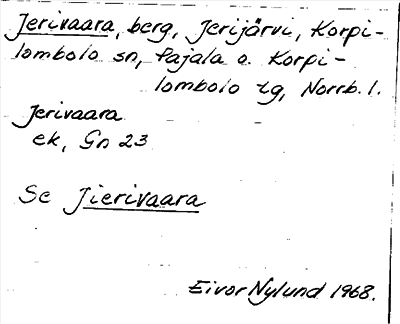 Jerivaara, berg, Jerijärvi, Korpi-
lombolo sn, Pajala o. Korpi-
lombolo tg, Norrb. l.
Jerivaara
ek, Gn 23
Se Jierivaara
Eivor Nylund 1968.